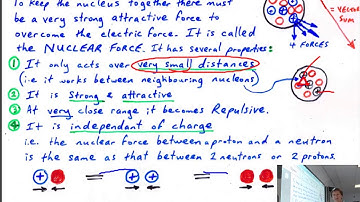 To keep the nucleus together there must
be a very strong attractive force to
overcome the electric force. It is called
the NUCLEAR FORCE. It has several properties:
1 It only acts over very small distances
(i.e it works between neighbouring nucleons)
2 It is Strong & attractive
3 At very close range it becomes Repulsive.
4 It is independent of charge
i.e. the nuclear force between a proton and a neutron
is the same as that between 2 neutrons or 2 protons.
4 FORCES
= VECTOR
SUM